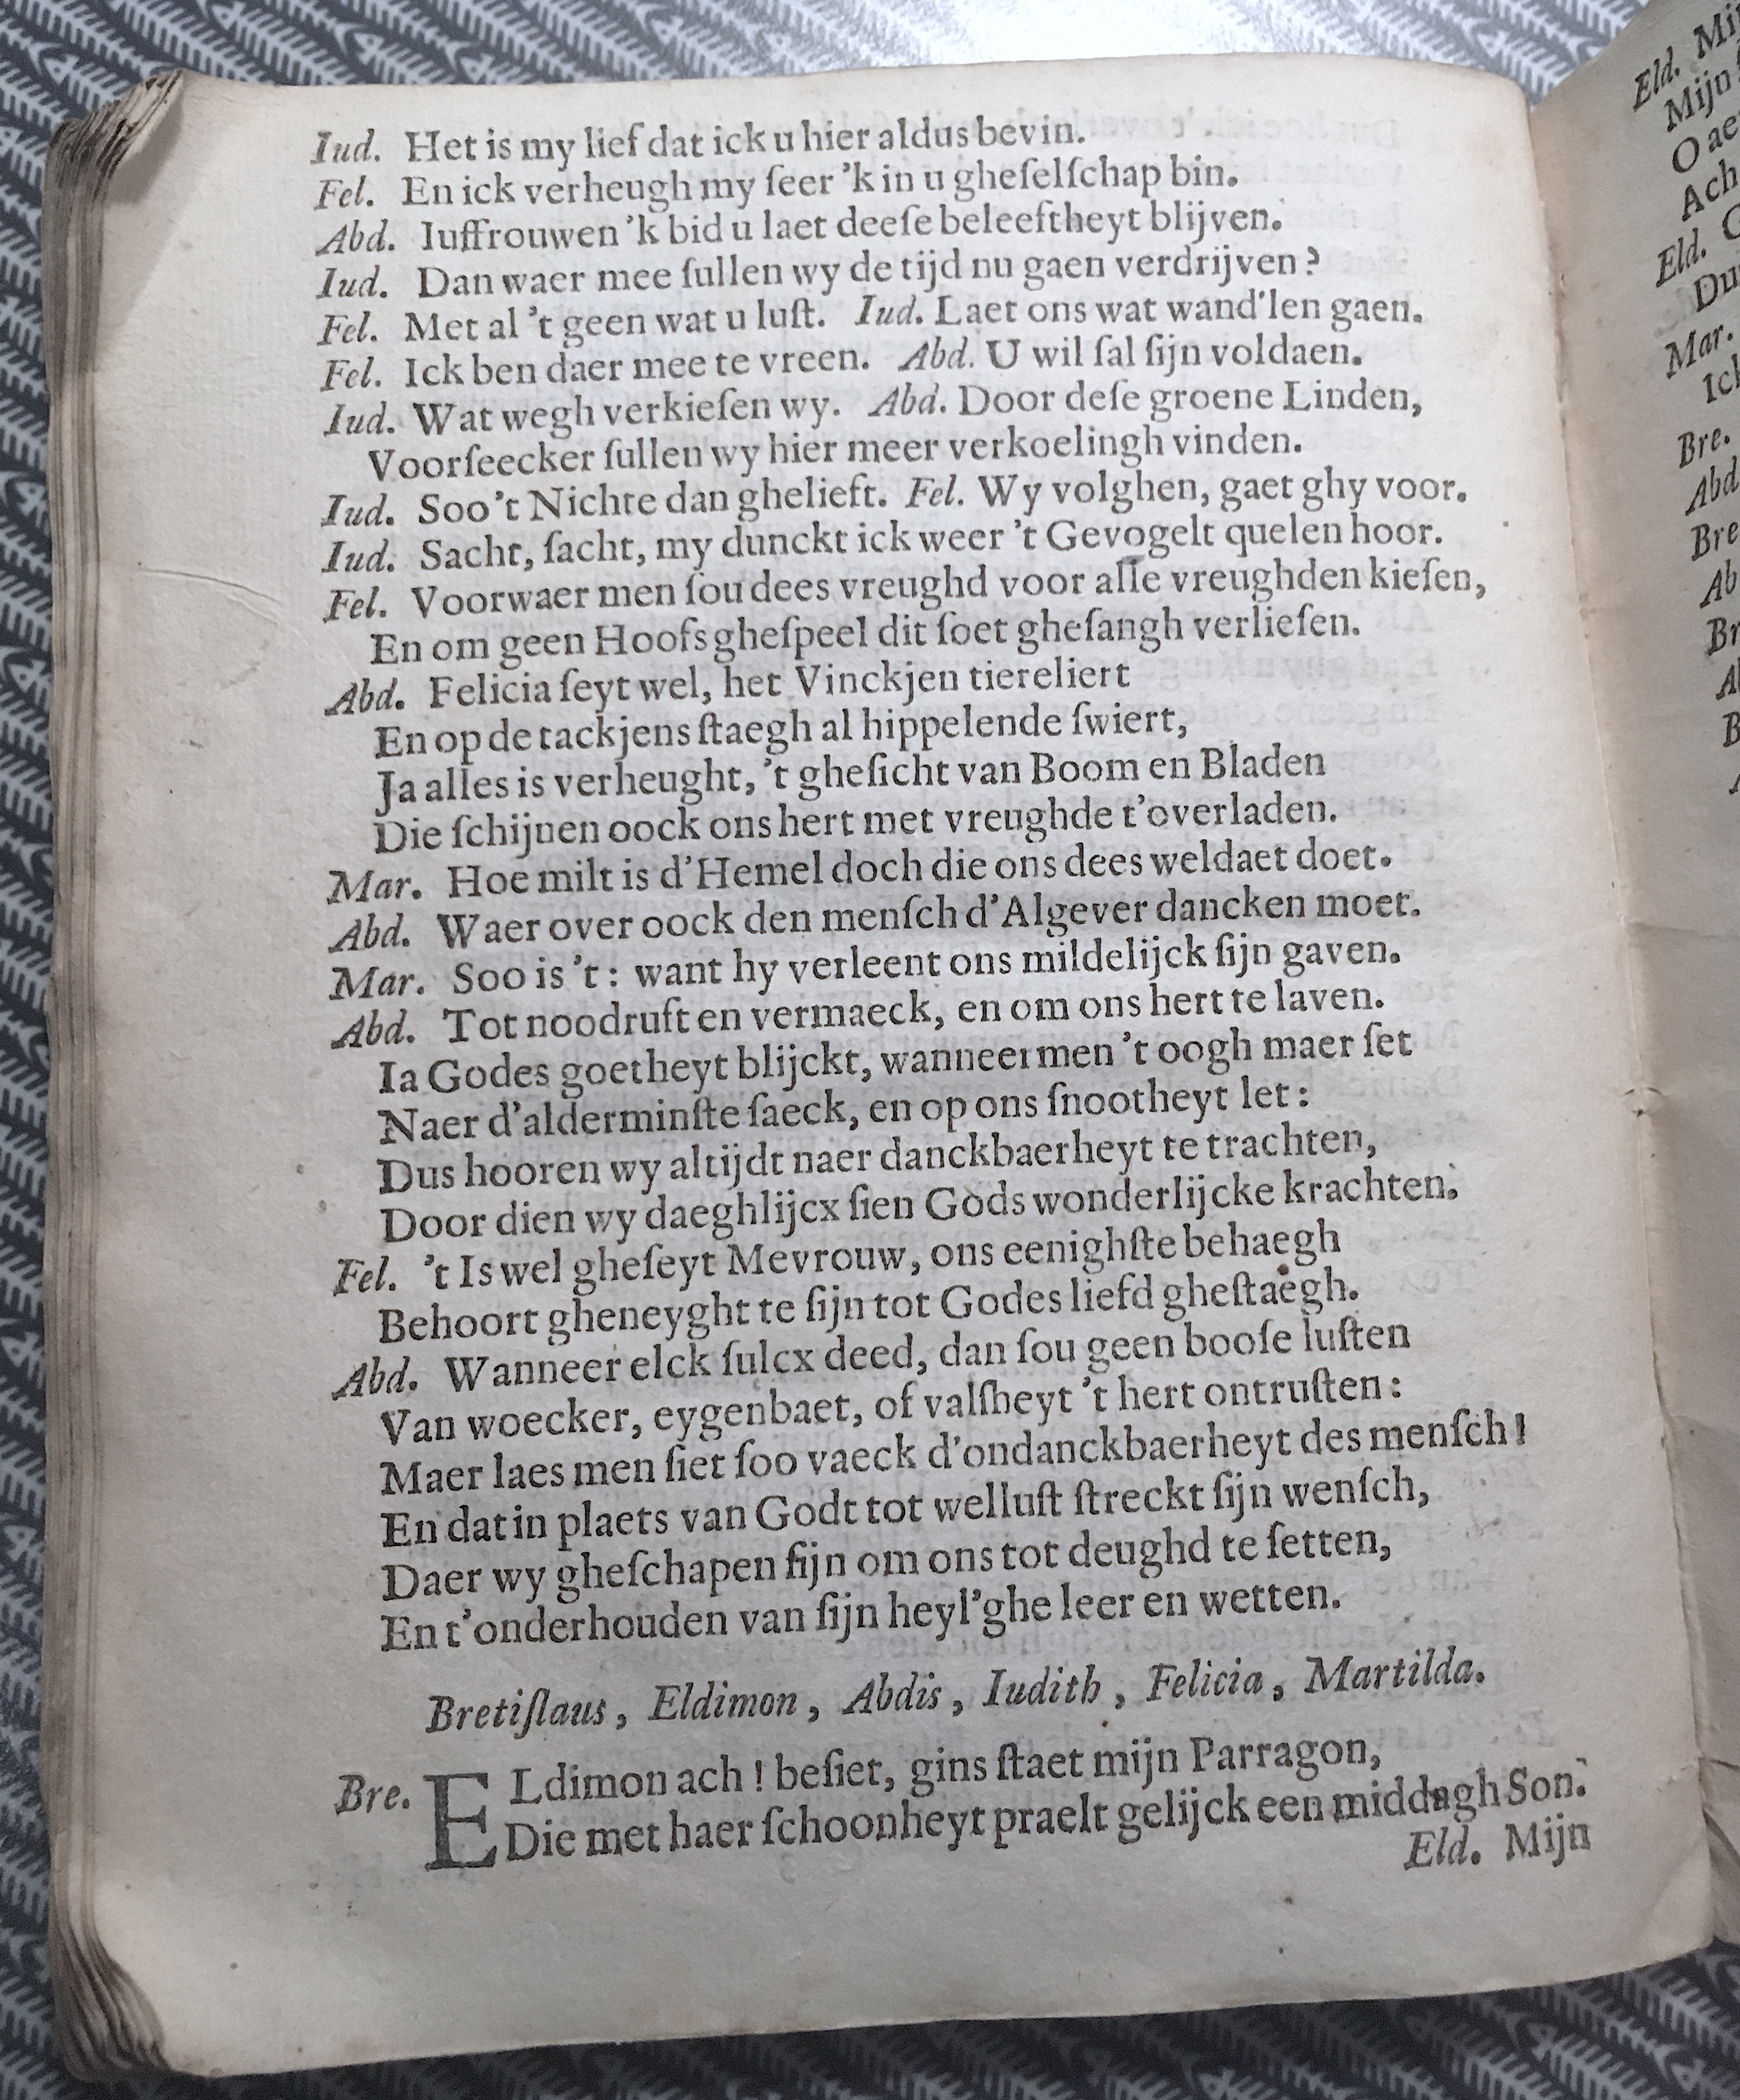 Iud. Het is my lief dat ick u hier aldus bevin.
Fel. En ick verheugh my ſeer 'k in u gheſelſchap bin.
Abd. Iuffrouwen 'k bid u laet deeſe beleeftheyt blijven.
Iud. Dan waer mee ſullen wy de tijd nu gaen verdrijven?
Fel. Met al 't geen wat u luſt. Iud. Laet ons wat wand'len gaen.
Fel. Ick ben daer mee te vreen. Abd. U wil ſal ſijn voldaen.
Iud. Wat wegh verkieſen wy. Abd. Door deſe groene Linden,
Voorſeecker ſullen wy hier meer verkoelingh vinden.
Iud. Soo 't Nichte dan ghelieft. Fel. Wy volghen, gaet ghy voor.
Iud. Sacht, ſacht, my dunckt ick weer 't Gevogelt quelen hoor.
Fel. Voorwaer men ſou dees vreughd voor alle vreughden kieſen,
En om geen Hoofs gheſpeel dit ſoet gheſangh verlieſen.
Abd. Felicia ſeyt wel, het Vinckjen tiereliert
En op de tackjens ſtaegh al hippelende ſwiert,
Ja alles is verheught, 't gheſicht van Boom en Bladen
Die ſchijnen oock ons hert met vreughde t'overladen.
Mar. Hoe milt is d'Hemel doch die ons dees weldaet doet.
Abd. Waer over oock den menſch d'Algever dancken moet.
Mar. Soo is 't: want hy verleent ons mildelijck ſijn gaven.
Abd. Tot noodruft en vermaeck, en om ons hert te laven.
Ia Godes goetheyt blijckt, wanneer men 't oogh maer ſet
Naer d'alderminſte ſaeck, en op ons ſnootheyt let:
Dus hooren wy altijdt naer danckbaerheyt te trachten,
Door dien wy daeghlijcx ſien Gods wonderlijcke krachten.
Fel. 't Is wel gheſeyt Mevrouw, ons eenighſte behaegh
Behoort gheneyght te ſijn tot Godes liefd gheſtaegh.
Abd. Wanneer elck ſulcx deed, dan ſou geen booſe luſten
Van woecker, eygenbaet, of valſheyt 't hert ontruſten:
Maer laes men ſiet ſoo vaeck d'ondanckbaerheyt des menſch!
En dat in plaets van Godt tot welluſt ſtreckt ſijn wenſch,
Daer wy gheſchapen ſijn om ons tot deughd te ſetten,
En t'onderhouden van ſijn heyl'ghe leer en wetten.
Bretiſlaus, Eldimon, Abdis, Iudith, Felicia, Martilda.
Bre. ELdimon ach! beſiet, gins ſtaet mijn Parragon,
Die met haer ſchoonheyt praelt gelijck een middagh Son.
Eld. Mijn
Eld.
Mijn
O
Ach
Eld.
Mar.
Bre.